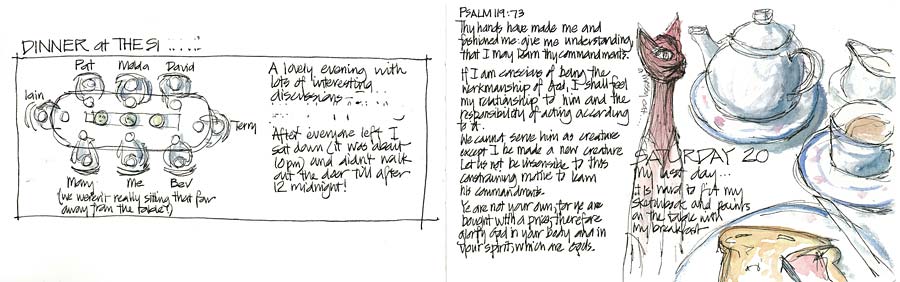 DINNER at THE SI
Pat Melda David
Iain
Terry
Mary Me Bev
(we weren't really sitting that far
away from the table!)
A lovely evening with
lots of interesting
discussions
After everyone left I
sat down (it was about
10pm) and didn't walk
out the door till after
12 midnight!
PSALM 119:73
Thy hands have made me and
fashioned me: give me understanding,
that I may learn thy commandments.
If I am conscious of being the
workmanship of God, I shall feel
my relationship to him and the
responsibility of acting according
to it.
We cannot serve him as creature
except I be made a new creature
Let us not be insensible to this
constraining motive to learn
his commandments.
Ye are not your own, for ye are
bought with a price; therefore
glorify God in your body and in
your spirit, which are God's.
SATURDAY 20
my last day...
it is hard to fit my
sketchbook and paints
on the table with
my breakfast